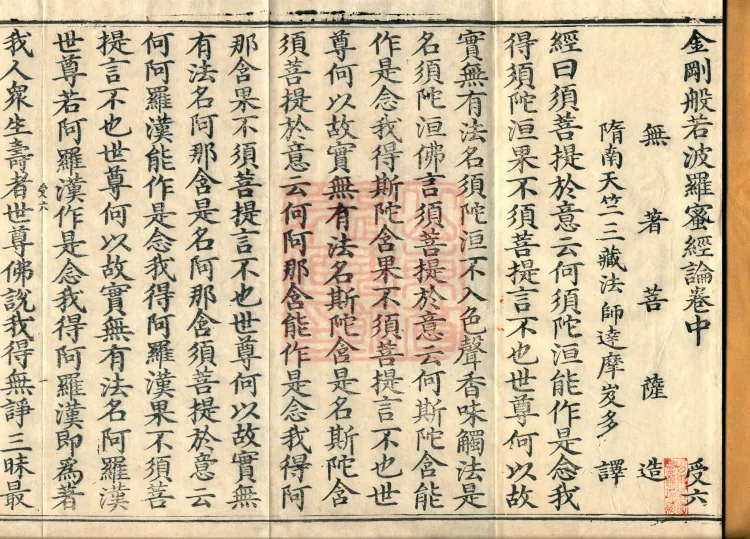 金剛般若波羅蜜經論卷中 受六
無著菩薩造
隋南天竺三藏法師達摩岌多譯
經曰須菩提於意云何須陀洹能作是念我
得須陀洹果不須菩提言不也世尊何以故
實無有法名須陀洹不入色聲香味觸法是
名須陀洹佛言須菩提於意云何斯陀含能
作是念我得斯陀含果不須菩提言不也世
尊何以故實無有法名斯陀含是名斯陀含
須菩提於意云何阿那含能作是念我得阿
那含果不須菩提言不也世尊何以故實無
有法名阿那含是名阿那含須菩提於意云
何阿羅漢能作是念我得阿羅漢果不須菩
提言不也世尊何以故實無有法名阿羅漢
世尊若阿羅漢作是念我得阿羅漢即為著
受六
我人眾生壽者世尊佛說我得無諍三昧最